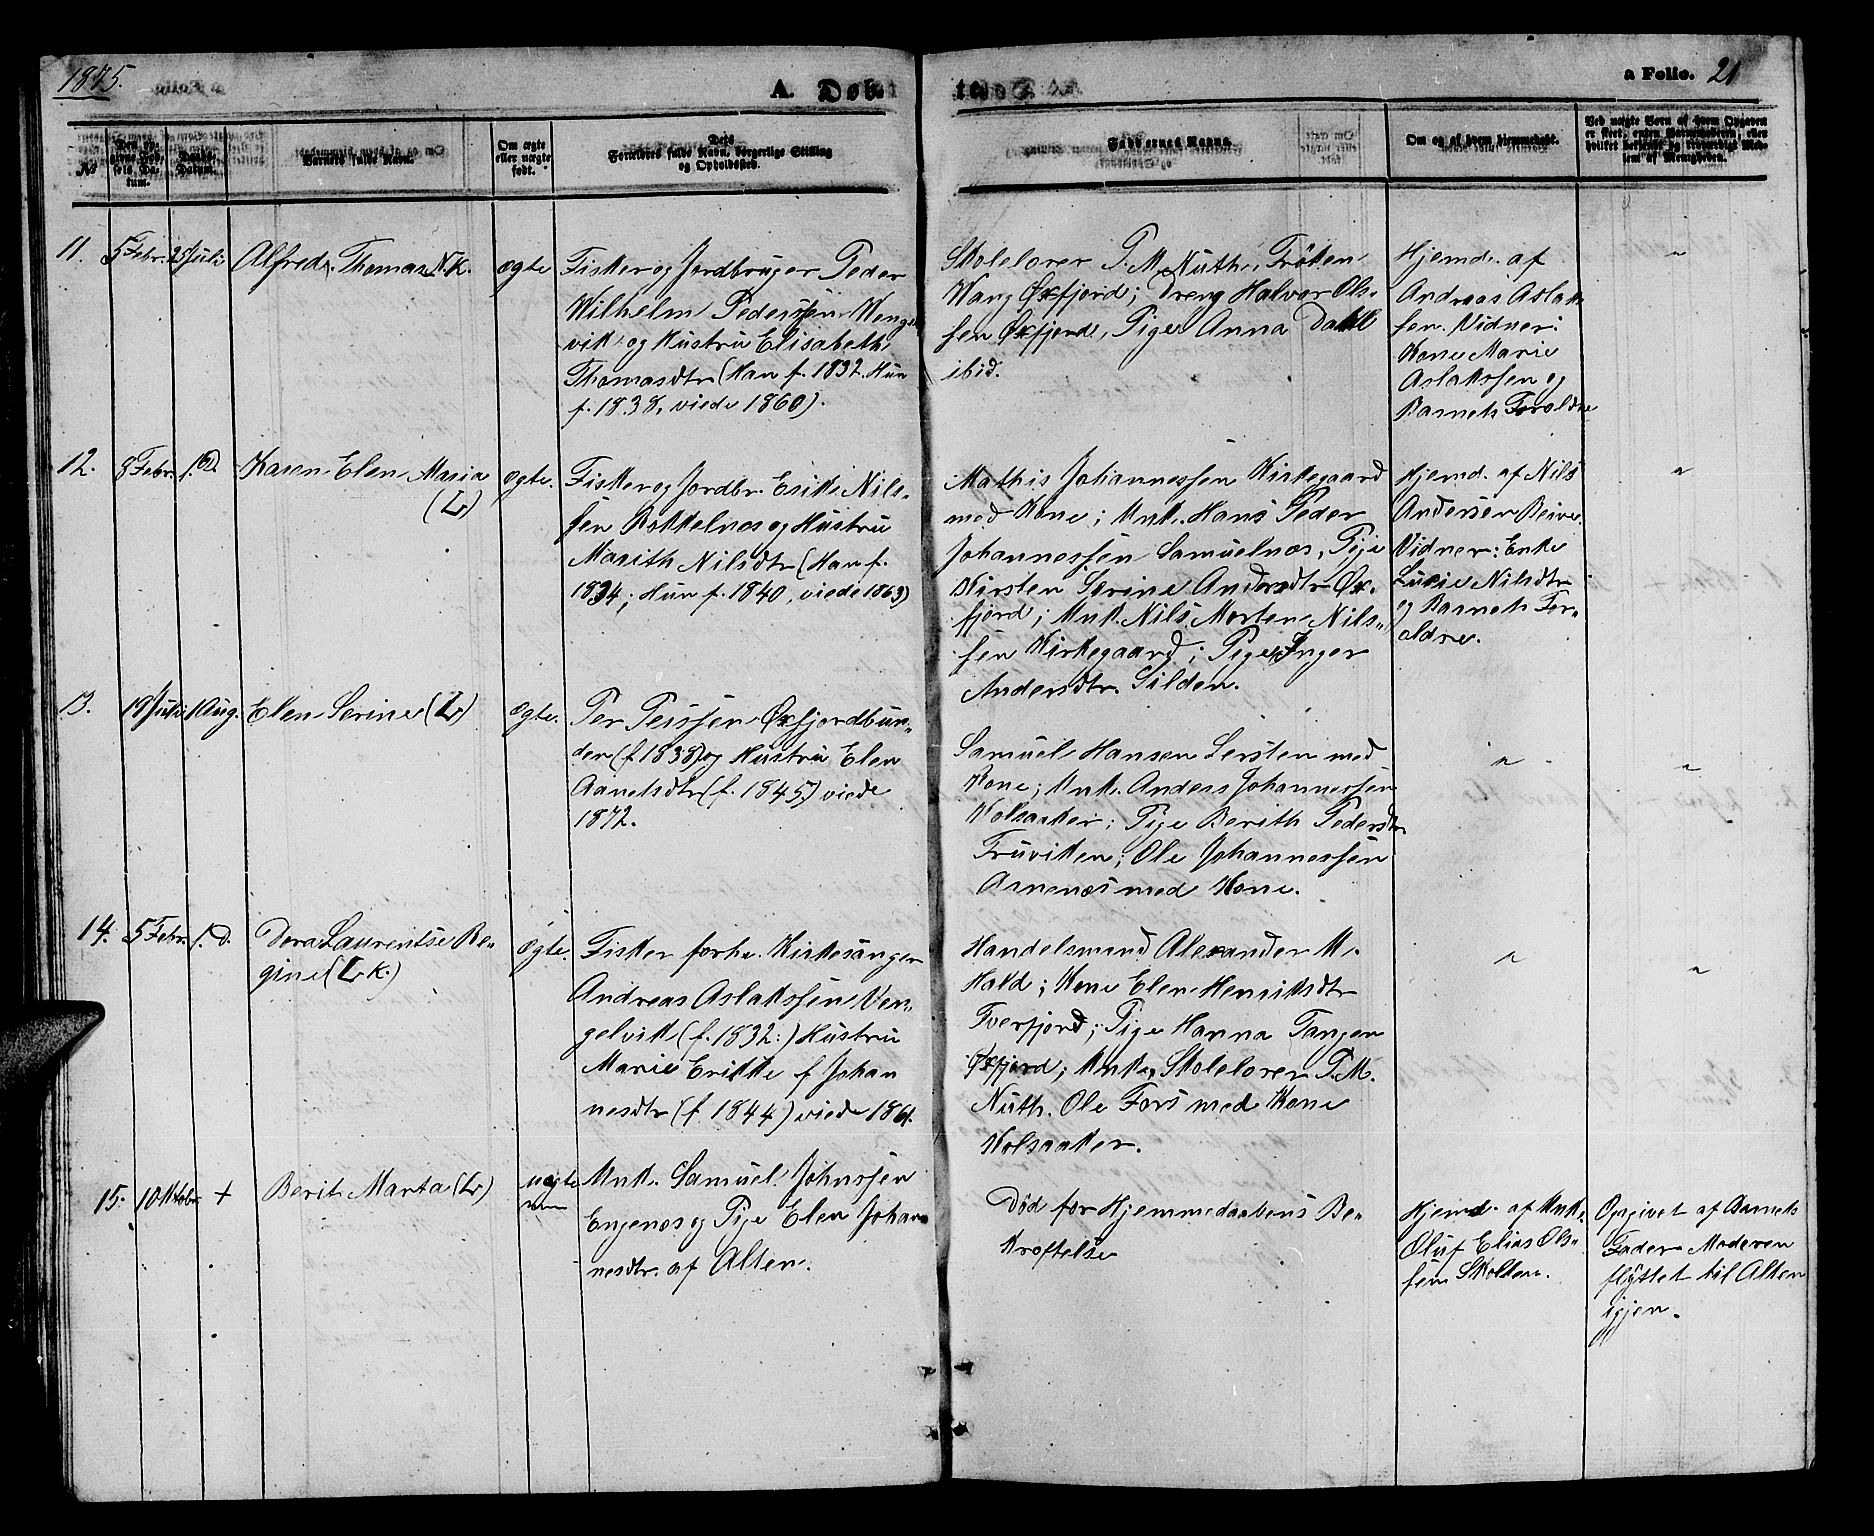 1875.
A. Døb- te. a Folio. 21
No
Den opgivne Fødsels Datum.
Daabs-Datum.
Barnets fulde Navn.
Om ægte eller uægte født.
Dets Forældres fulde Navn, borgerlige Stilling og Opholdssted.
Faddernes Navne.
Om og af hvem hjemmedøbt.
Ved uægte Børn af hvem Opgaven er skeet, enten Barnefaderen, eller hvilket bekjendt og troværdigt Medlem af Menigheden.
11. 5 Febr. 25 Juli Alfred Thomas N.K. ægte
Fisker og Jordbruger Peder
Wilhelm Pederssen Weng-
vik og Hustru Elisabeth
Thomasdtr (Han f. 1832. Hun
f. 1838, viede 1860).
Skolelærer P. M. Nuth, Frøken
Wang Øxfjord; Dreng Halvor Ols-
sen Øxfjord, Pige Anna Dahl
ibid.
Hjemd. af
Andreas Aslak-
sen. Vidner:
Kone Marie
Aslakssen og
Barnets Forældre
"
12. 8 Febr. s. D. Karen Elen Maria
(L)
ægte.
Fisker og Jordbr. Erik Nils-
sen Bokkelnæs og Hustru
Marith Nilsdtr (Han f.
1834; Hun f. 1840, viede 1863)
Mathis Johannessen Kirkegaard
med Kone; Unk. Hans Peder
Johannessen Samuelnæs, Pige
Kirsten Serine Andersdtr Øx-
fjord; Unk. Nils Morten Nils-
sen Kirkegaard; Pige Inger
Andersdtr. Silden.
Hjemd. af Nils
Andersen Reive.
Vidner: Enke
Lucie Nilsdtr
og Barnets For-
ældre.
"
13. 19 Juli 1 Aug. Elen Serine (L) ægte.
Per Perssen Øxfjordbun-
den (f. 1838) og Hustru Elen
Aanetsdtr (f. 1845) viede
1872.
Samuel Hansen Lersten med
Kone; Unk. Anders Johannessen
Kolsaaker; Pige Berith Pedersdtr
Truviken; Ole Johannessen
Arnenæs med Kone.
"
"
14. 5 Febr. s. D. Dora Laurentse Re-
gine (L k.)
ægte.
Fisker forhv. Kirkesanger
Andreas Aslakssen Ven-
gelvik (f. 1832:) Hustru
Marie Erikke f Johan
nesdtr (f. 1844) viede 1861.
Handelsmand Alexander M.
Hald; Kone Elen Henriksdtr
Tverfjord; Pige Hanna Tangen
Øxfjord; Unk. Skolelærer P. M.
Nuth. Ole Fors med Kone
Kolsaaker.
"
"
15. 10 Oktobr. + Berit Marta (L) uægte
Unk. Samuel Johnssen
Engenæs og Pige Elen Johan
nesdtr. af Alten.
Død før Hjemmedaabens Be-
kræftelse
Hjemd. af Unk.
Oluf Elias Ols-
sen Skolten.
Opgivet af Barnets
Fader. Moderen
flyttet til Alten
igjen.